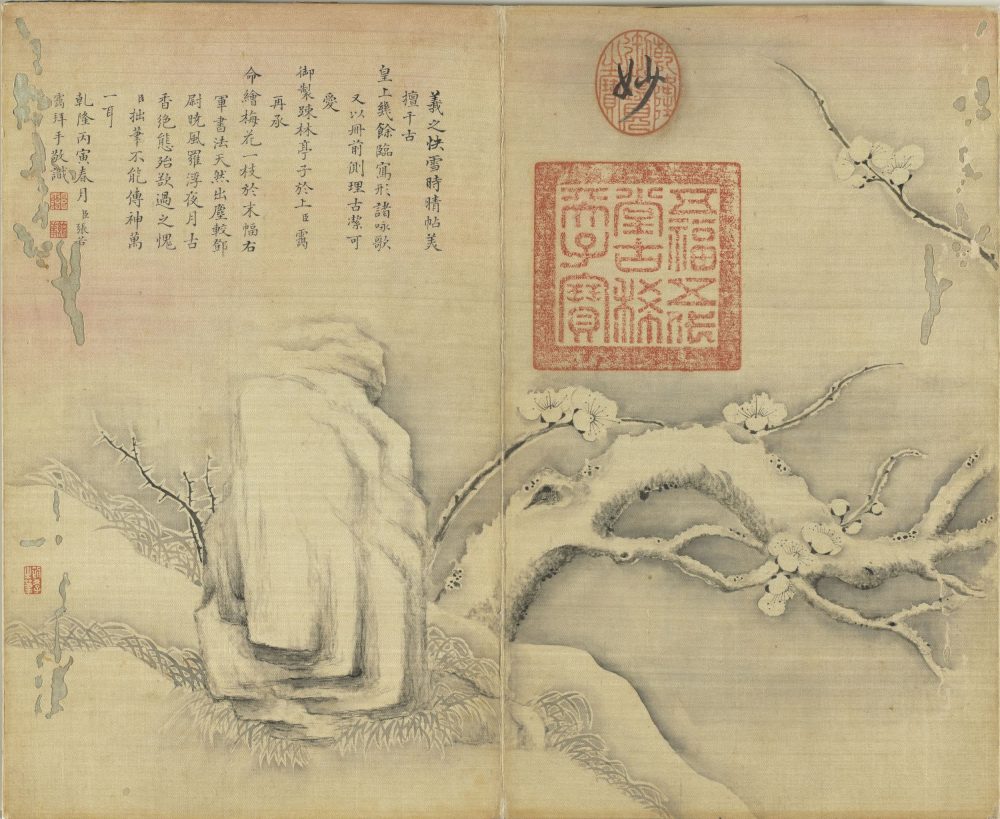 妙
乾隆御覽之寶
五福五代
堂古稀
天子寶
羲之快雪時晴帖美
擅千古
皇上幾餘臨寫形諸咏歌
又以冊前側理古潔可
愛
御製踈林亭子於上臣靄
再承
命繪梅花一枝於末幅右
軍書法天然出塵較鄧
尉曉風羅浮夜月古
香絕態殆欲過之愧
臣拙筆不能傳神萬
一耳
乾隆丙寅春月臣張若
靄拜手敬識